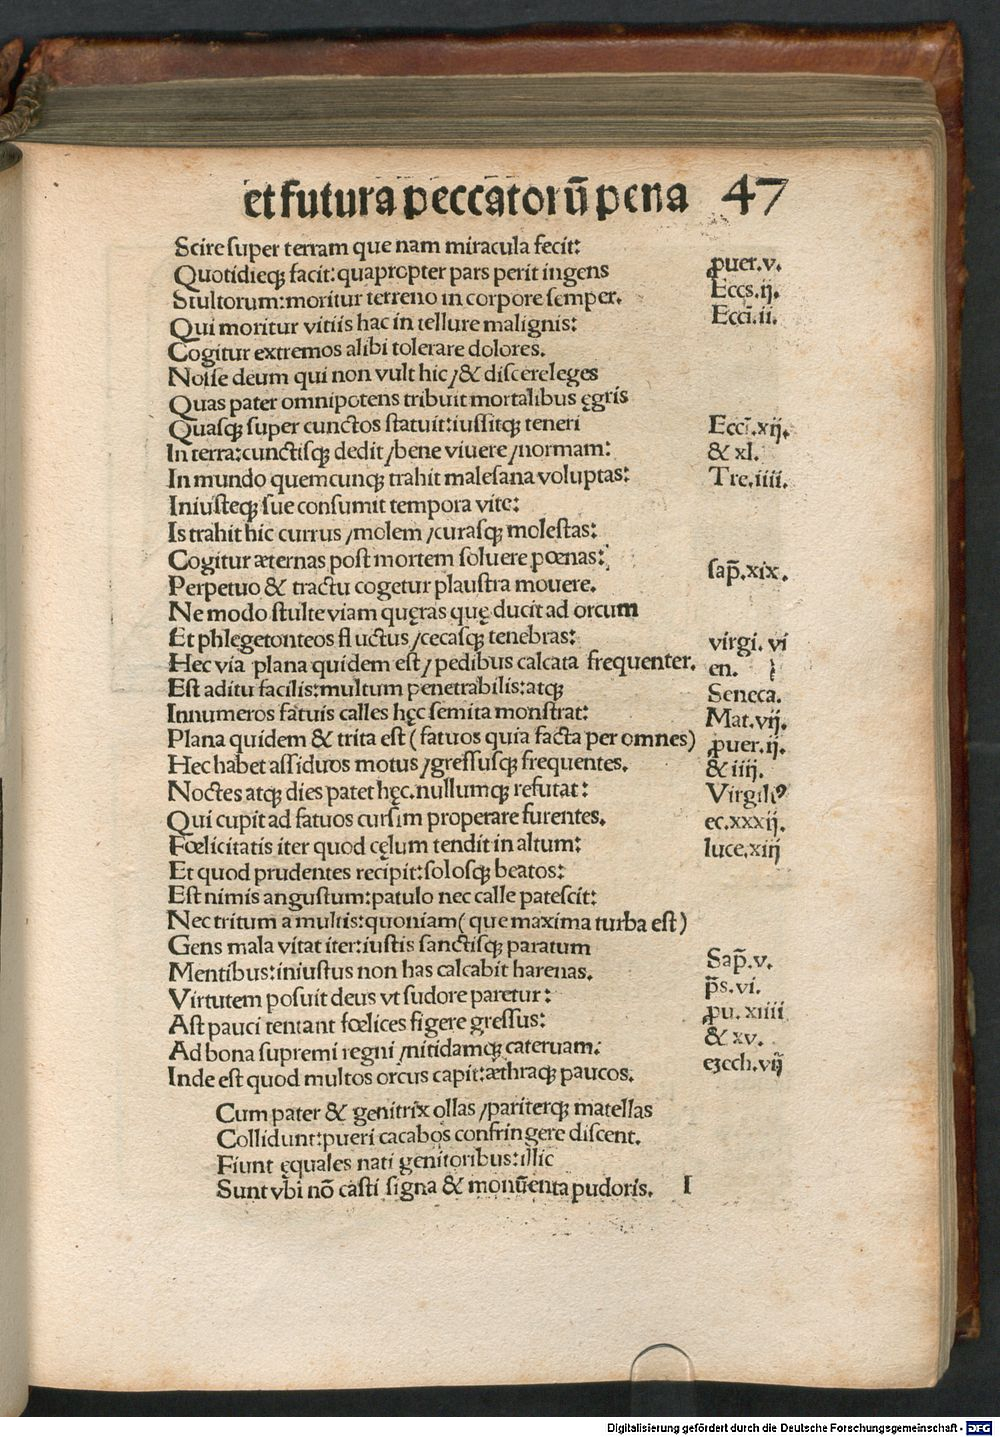 et futura peccatorū pena 47
Scire super terram que nam miracula fecit:
Quotidieqꝫ facit: quapropter pars perit ingens
Stultorum: moritur terreno in corpore semper.
Qui moritur vitiis hac in tellure malignis:
Cogitur extremos alibi tolerare dolores.
Nosse deum qui non vult hic / & discere leges
Quas pater omnipotens tribuit mortalibus ęgris
Quasqꝫ super cunctos statuit: iussitqꝫ teneri
In terra: cunctisqꝫ dedit / bene viuere / normam:
In mundo quemcunqꝫ trahit malesana voluptas:
Iniusteqꝫ sue consumit tempora vite:
Is trahit hic currus / molem / curasqꝫ molestas:
Cogitur æternas post mortem soluere pœnas:
Perpetuo & tractu cogetur plaustra mouere.
Ne modo stulte viam quęras quę ducit ad orcum
Et phlegetonteos fluctus / cecasqꝫ tenebras:
Hec via plana quidem est / pedibus calcata frequenter.
Est aditu facilis: multum penetrabilis: atqꝫ
Innumeros fatuis calles hęc semita monstrat:
Plana quidem & trita est ( fatuos quia facta per omnes)
Hec habet assiduos motus / gressusqꝫ frequentes.
Noctes atqꝫ dies patet hęc. nullumqꝫ refutat:
Qui cupit ad fatuos cursim properare furentes.
Fœlicitatis iter quod cęlum tendit in altum:
Et quod prudentes recipit: solosqꝫ beatos:
Est nimis angustum: patulo nec calle patescit:
Nec tritum a multis: quoniam ( que maxima turba est )
Gens mala vitat iter: iustis sanctisqꝫ paratum
Mentibus: iniustus non has calcabit harenas.
Virtutem posuit deus vt sudore paretur:
Ast pauci tentant fœlices figere gressus:
Ad bona supremi regni / nitidamqꝫ cateruam:
Inde est quod multos orcus capit: æthraqꝫ paucos.
Cum pater & genitrix ollas / pariterqꝫ matellas
Collidunt: pueri cacabos confringere discent.
Fiunt ęquales nati genitoribus: illic
Sunt vbi nō casti signa & monūenta pudoris. I
ꝓuer. v.
Eccs. ij.
Ecci̅. ii.
Ecci̅. xij.
& xl.
Tre. iiii.
sap̄. xix.
virgi. vi
en.
Seneca.
Mat. vij.
ꝓuer. ij.
& iiij.
Virgiliꝰ
ec. xxxij.
luce. xiij
Sap̄. v.
p̄s. vi.
ꝓu. xiiii
& xv.
ezech. vij
Digitalisierung gefördert durch die Deutsche Forschungsgemeinschaft - DFG